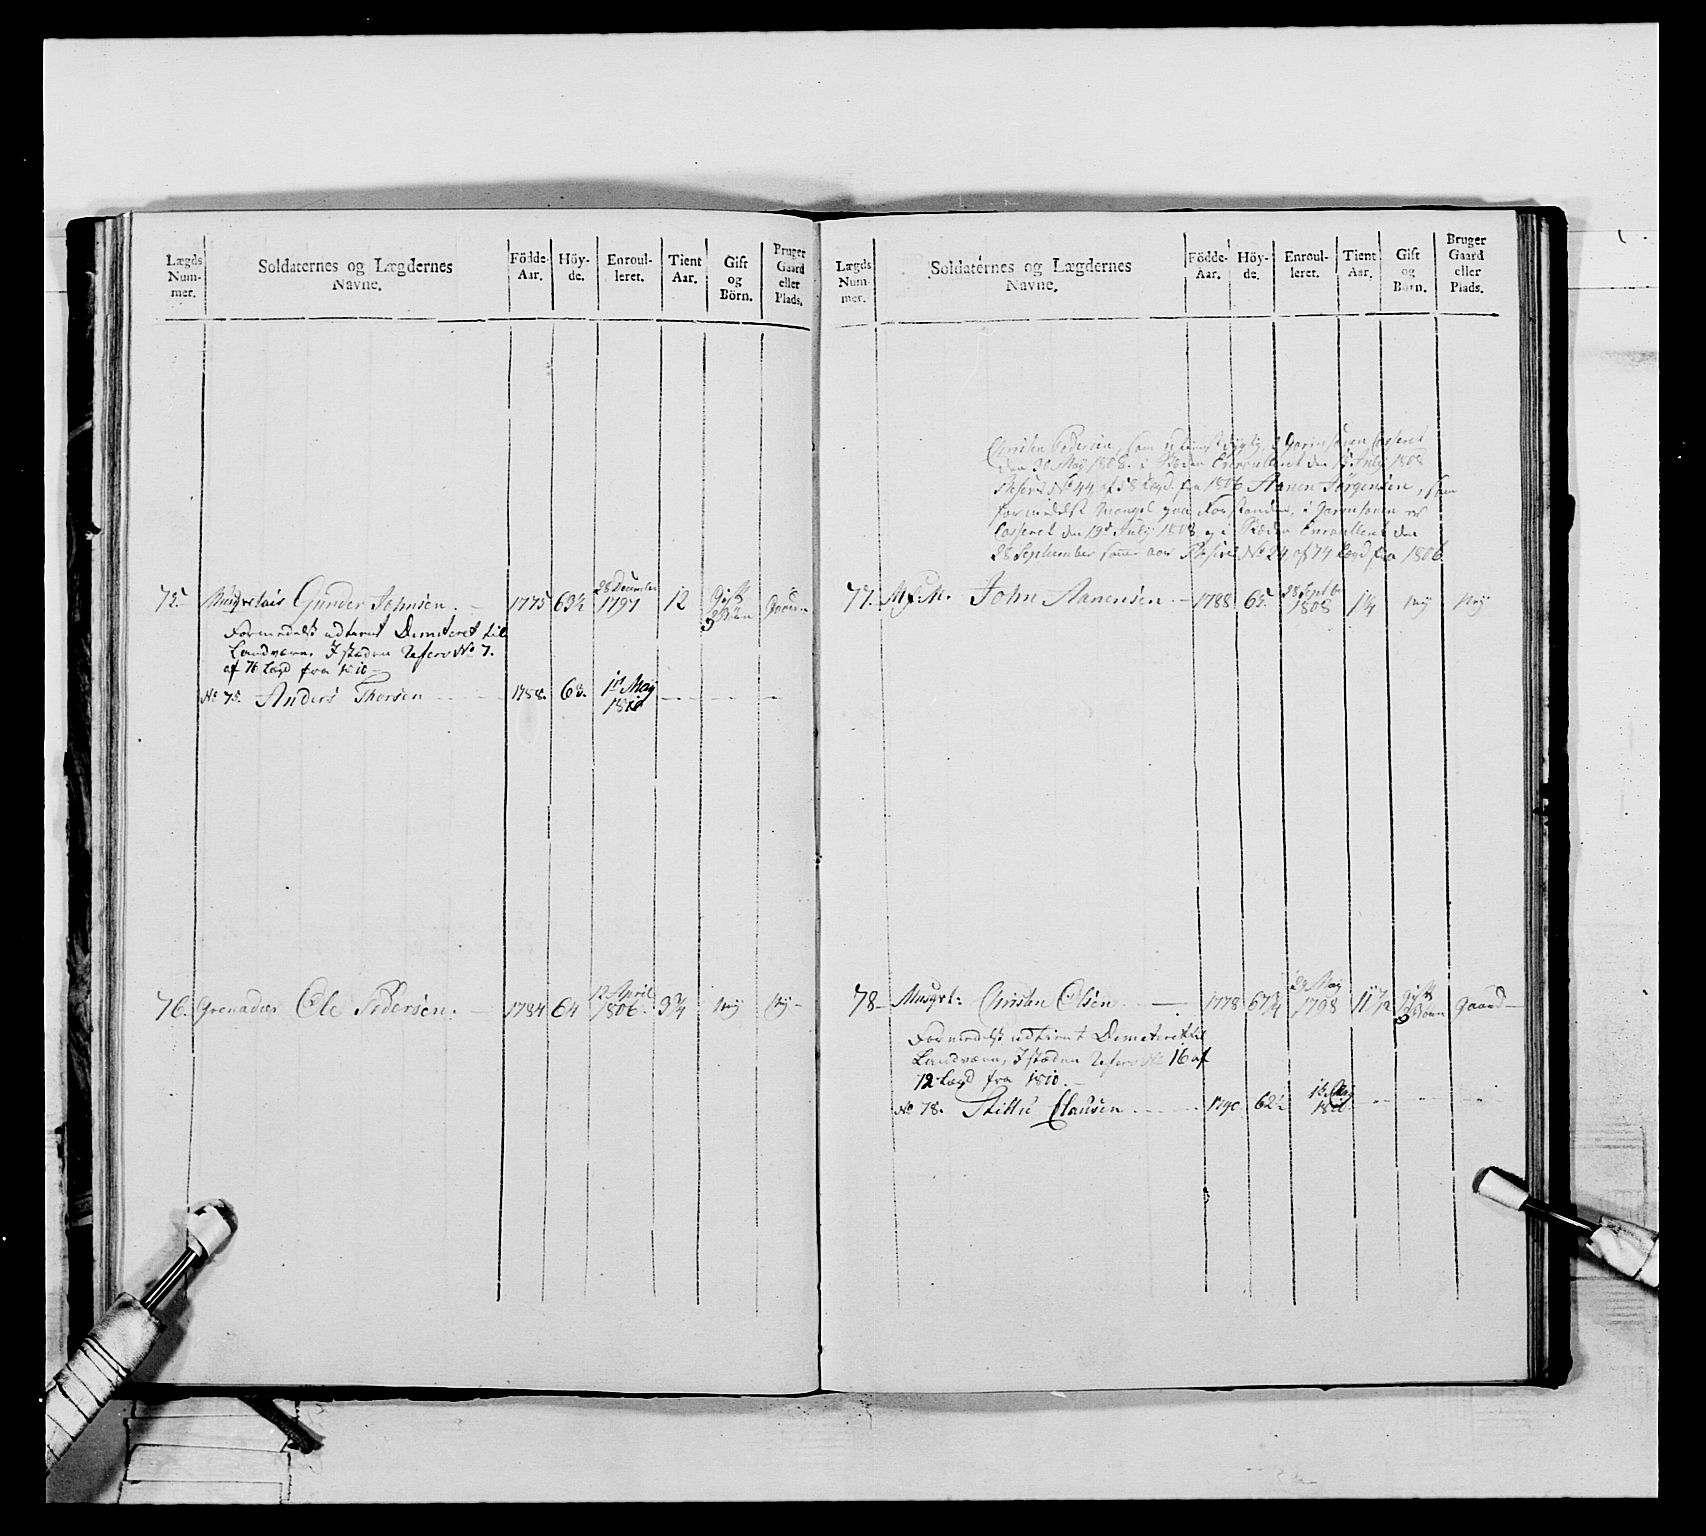 Lægds Num- mer.
Soldaternes og Lægdernes Navne.
Födde- Aar.
Höy- de.
Enroul- leret.
Tient Aar.
Gift og Börn.
Bruger Gaard eller Plads.
75. Gunder Johnsen. 1775 63½ 28 December 1797 12 Gift Gaard
Formedelst udtient Dimiteret til
Landværn, I stæden Reserv No 7.
af 76 Lægd fra 1810
No 75. Anders Thorsen 1788. 63. 1st May 1810
76. Grenadeer Ole Pedersen. 1784 64 12 April 1806. 3¾ Ney Ney
Lægds Num- mer.
Soldaternes og Lægdernes Navne.
Födde- Aar.
Höy- de.
Enroul- leret.
Tient Aar.
Gift og Börn.
Bruger Gaard eller Plads.
Christen Pedersen, som i Garnisonen Casseret
den 30 May 1808. i Stæden Enroulleret den July 1808
Reserv No 44 af 58 Lægd fra 1806 Aanen Jørgensen, som
formedelst Mangel paa Forstanden, i Garnisonen er
Casseret den 19de July 1808 og i Stæden Enroulleret den
28 September samme aar Reserv No 24 af 74 Lægd fra 1806
77. John Aanensen 1788 65. 28 Septbr 1808 1¼ Ney Ney
78 Musqt: Christen Olsen 1778 67¼ May 1798 Gift Gaard
Formedelst udtient Dimiteret til
Landværn, I stæden Reserv No 16 af
12 Lægd fra 1810.
No 78. Clausen 1790 62½ May 1810